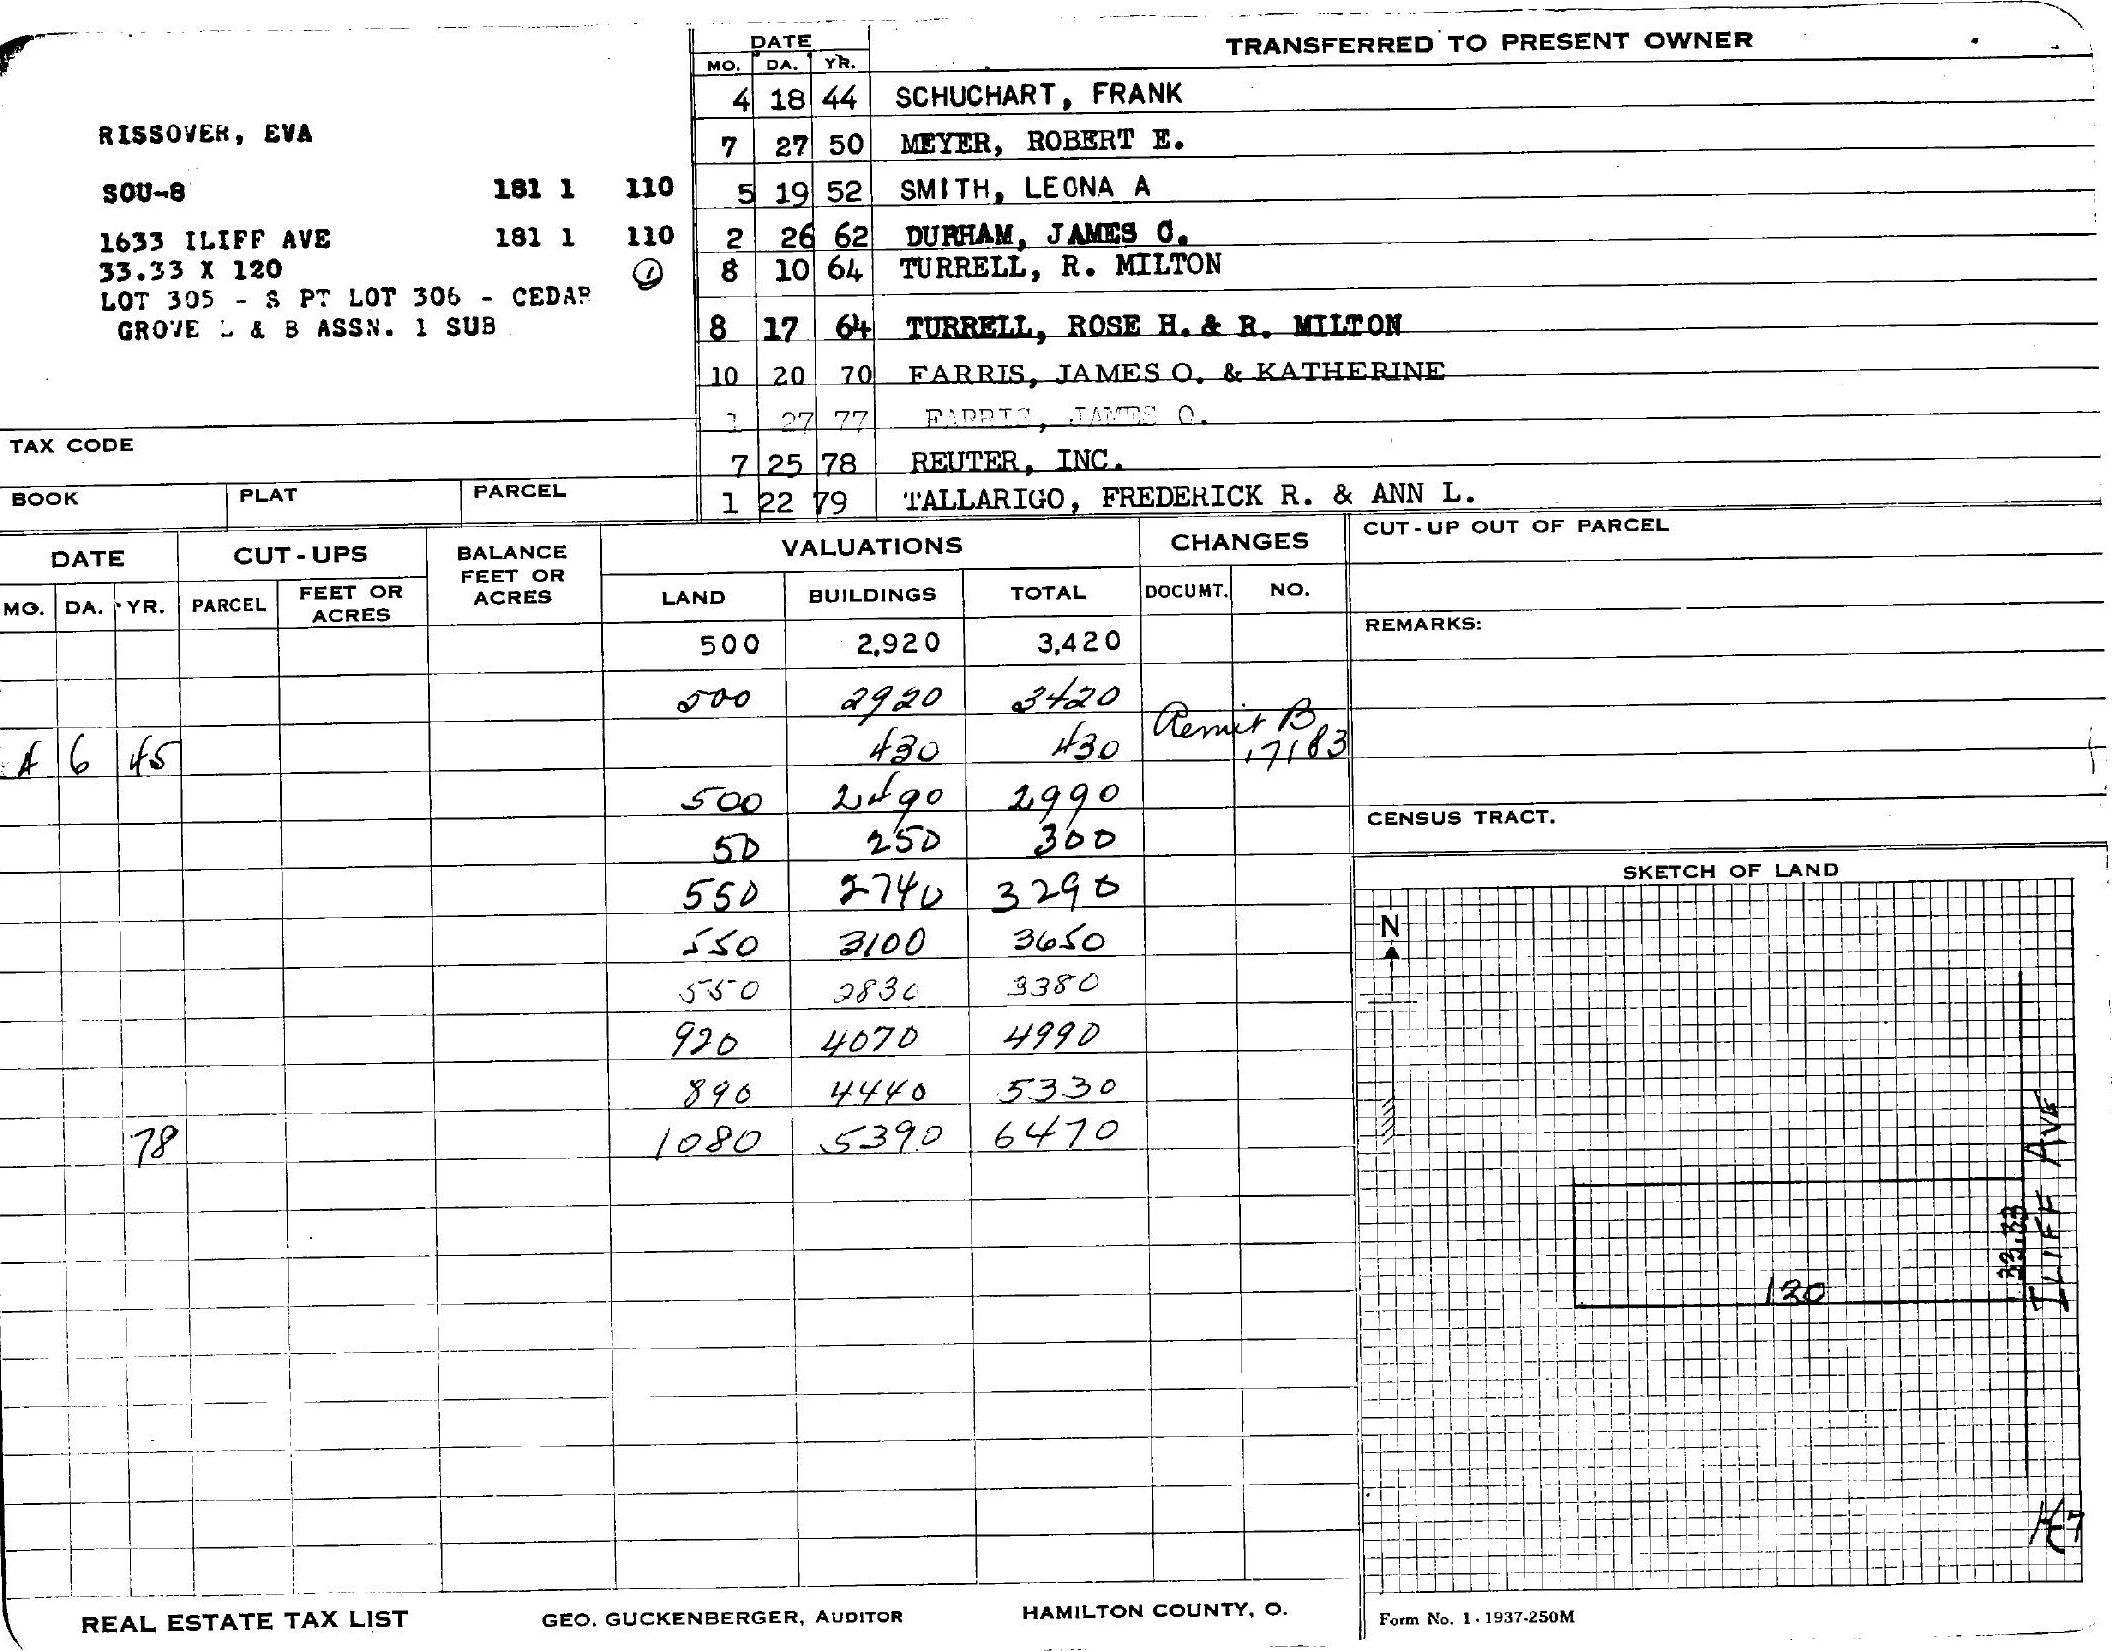 RISSOVER, EVA
SOU-8 181 1 110
1633 ILIFF AVE 181 1 110
33.33 X 120 1
LOT 305 - S PT LOT 306 - CEDAR
GROVE L & B ASSN. 1 SUB
TAX CODE
BOOK PLAT PARCEL
DATE TRANSFERRED TO PRESENT OWNER
MO. DA. YR.
4 18 44 SCHUCHART, FRANK
7 27 50 MEYER, ROBERT E.
5 19 52 SMITH, LEONA A
2 26 62 DURHAM, JAMES O.
8 10 64 TURRELL, R. MILTON
8 17 64 TURRELL, ROSE H. & R. MILTON
10 20 70 FARRIS, JAMES O. & KATHERINE
1 27 77 FARRIS, JAMES O.
7 25 78 REUTER, INC.
1 22 79 TALLARIGO, FREDERICK R. & ANN L.
DATE CUT-UPS BALANCE FEET OR ACRES VALUATIONS CHANGES
MO. DA. YR. PARCEL FEET OR ACRES LAND BUILDINGS TOTAL DOCUMT. NO.
500 2,920 3,420
500 2920 3420
4 6 45 430 430 Remit B 17183
500 2490 2990
50 250 300
550 2740 3290
550 3100 3650
550 2830 3380
920 4070 4990
890 4440 5330
78 1080 5390 6470
CUT-UP OUT OF PARCEL
REMARKS:
CENSUS TRACT.
SKETCH OF LAND
N
ILIFF AVE
33.33
120
REAL ESTATE TAX LIST GEO. GUCKENBERGER, AUDITOR HAMILTON COUNTY, O. Form No. 1-1937-250M